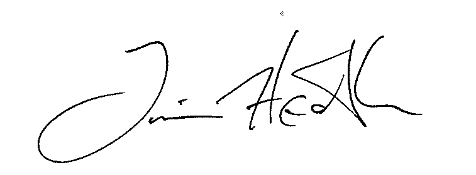 Tim Heath